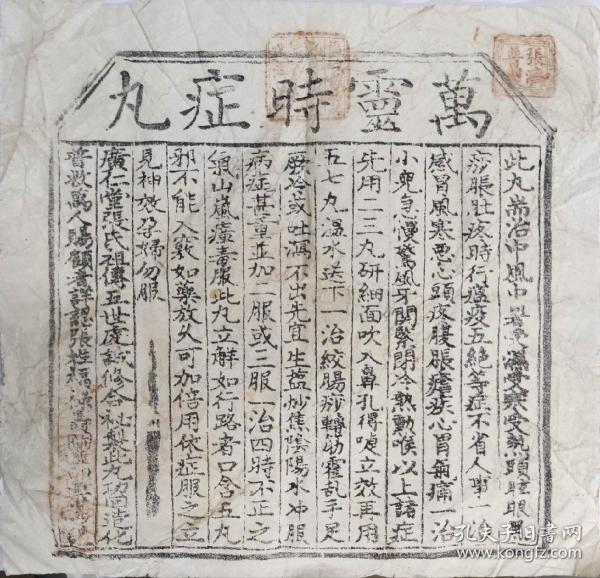 萬靈時症丸
此丸耑治中風中暑受熱頭暈眼
痧脹肚疼時行瘟疫五絕等症不省人事一
感冒風寒惡心頭疼腹脹瘧疾心胃氣痛一治
小兒急慢驚風牙関緊閉冷熱動喉以上諸症
先用二三丸研細面吹入鼻孔得嚏立效再用
五七丸溫水送下一治絞腸痧轉筋霍乱手足
厥冷或吐瀉不出先宜生鹽炒焦陰陽水冲服
病症甚重並加二服或三服一治四時不正之
氣山嵐瘴毒服此丸立解如行路者口含五丸
邪不能入竅如藥放久可加倍用依症服之立
見神效孕婦勿服
廣仁堂張氏祖傳五世虔誠修合秘製此丸功同造化
普救萬人賜顧者詳認張姓
孔夫子旧书网
www.kongfz.com